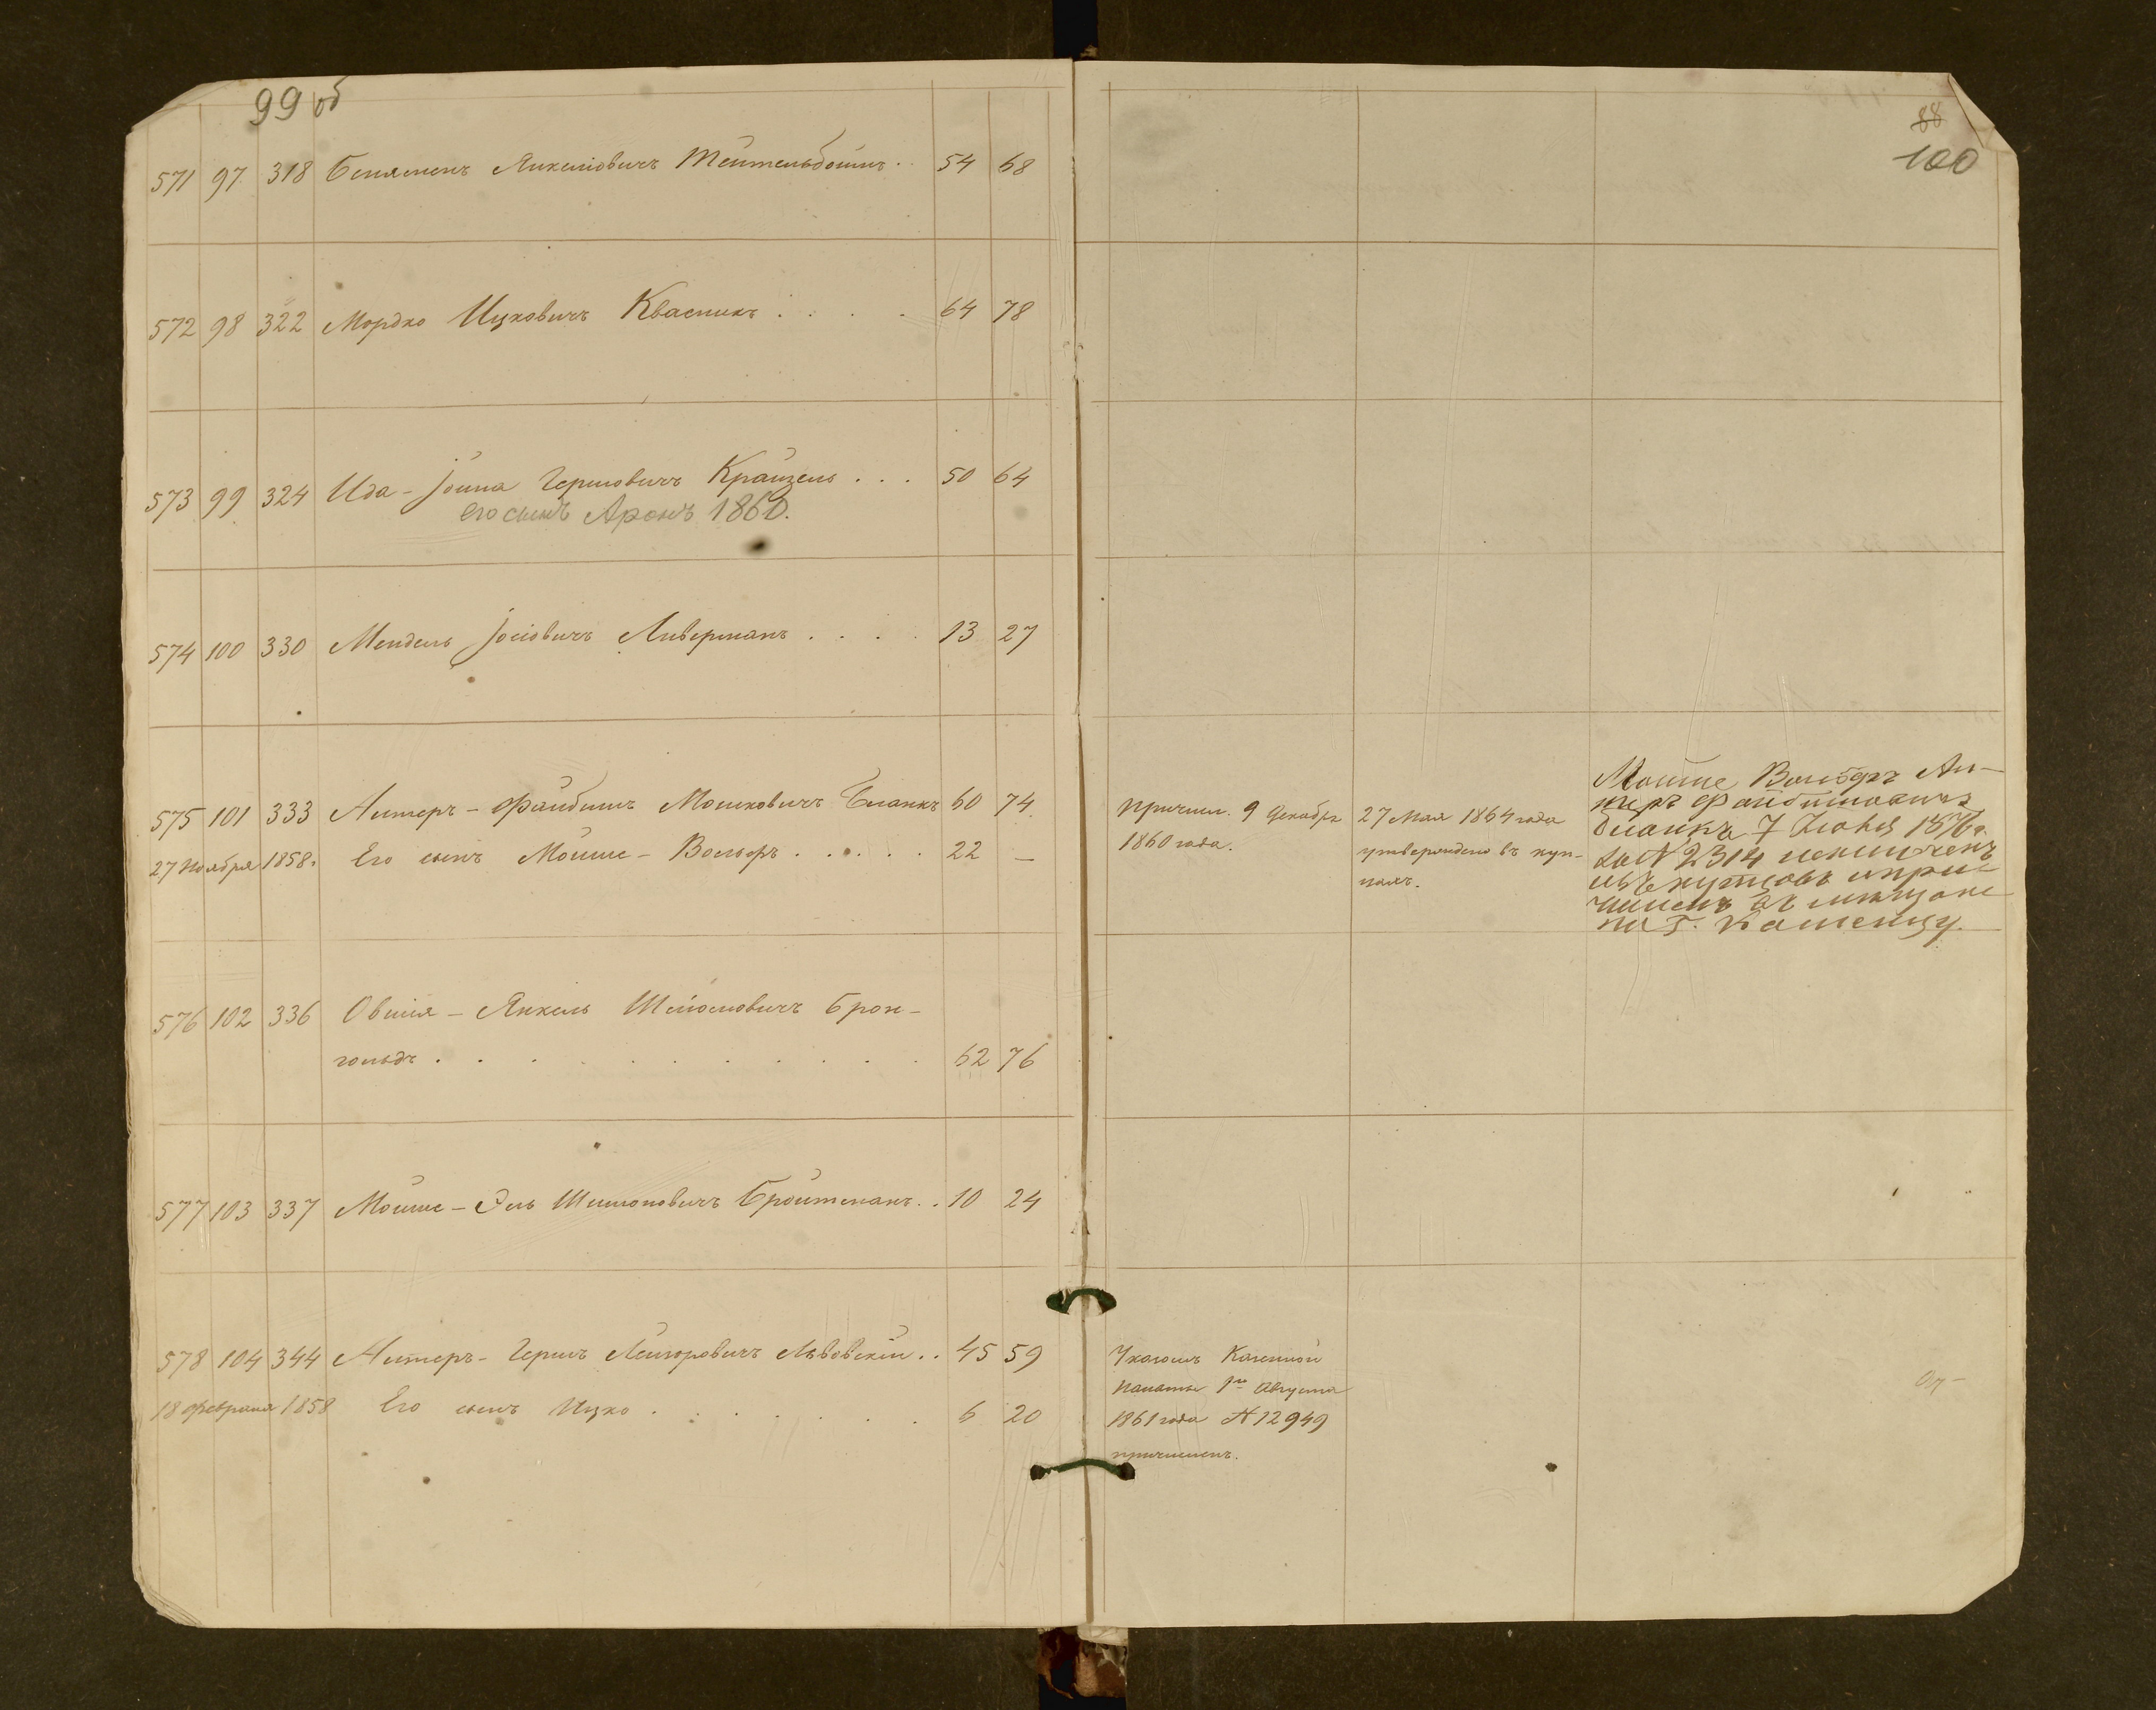 99 об
571 97 318 Бенямень Янкелiовичъ Тейтельбоймъ . . 54 68
572 98 322 Мордко Ицковичъ Квасникъ . . . . 64 78
573 99 324 Ида - Іойна Гершовичъ Крайзель . . . 50 64
его сынъ Аронъ 1860.
574 100 330 Мендель Іосiовичъ Ливерманъ . . . . 13 27
575 101 333 Литеръ - Файбишъ Мошковичъ Бланкъ 60 74
27 Ноября 1858 г. Его сынъ Мойше - Вольфъ . . . . . 22 —
576 102 336 Овшiя - Янкель Шліомовичъ Брон-
гольдъ . . . . . . . . . . . 62 76
577 103 337 Мойше - Эль Шимоновичъ Бройтманъ . . 10 24
578 104 344 Литеръ - Гершъ Лейзоровичъ Львовскій . . 45 59
18 Февраля 1858 Его сынъ Ицко . . . . . . . 6 20
88
100
причисл. 9 Декабря
1860 года.
27 Мая 1864 года
утверждено въ куп-
цахъ.
Мойше Вольфъ Ли-
теръ Файбишовичъ
Бланкъ 7 Іюня 1876 г.
за № 2314 исключенъ
изъ купцовъ и при-
численъ въ мѣщане
по г. Каменцу.
Указомъ Казенной
Палаты 1го Августа
1861 года № 12949
причисленъ.